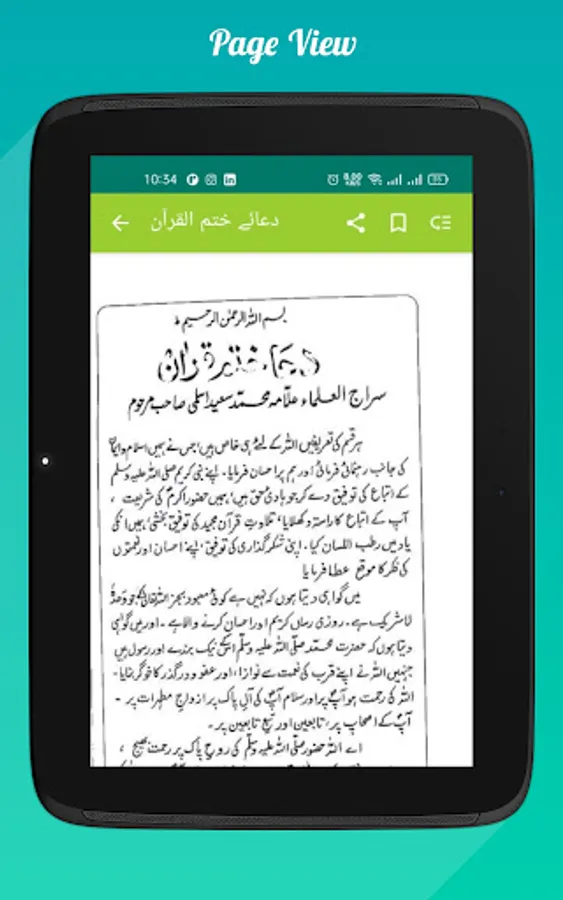 Page View
10:34
دعائے ختم القرآن
بسم اللہ الرحمٰن الرحیم
سراج العلماء علامہ محمد سعید اسلمی صاحب مرحوم
ہر قسم کی تعریفیں اللہ کے لیے ہی خاص ہیں جس نے ہمیں اسلام و ایمان
کی جانب رہنمائی فرمائی اور ہم پر احسان فرمایا۔ اپنے نبی کریم صلی اللہ علیہ وسلم
کے اتباع کی توفیق دے کر جو ہادیٔ حق ہیں، ہمیں حضور اکرمؐ کی شریعت ،
آپ کے اتباع کا راستہ دکھلایا، تلاوتِ قرآن مجید کی توفیق بخشی، ہمیں انکی
یاد میں رطب اللسان کیا۔ اپنی شکر گذاری کی توفیق، اپنے احسان اور نعمتوں
کی فکر کا موقع عطا فرمایا
میں گواہی دیتا ہوں کہ نہیں ہے کوئی معبود بجز اللہ تعالیٰ کے جو وحدہٗ
لا شریک ہے۔ روزی رساں کریم اور احسان کرنے والا ہے۔ اور میں گواہی
دیتا ہوں کہ حضرت محمد صلی اللہ علیہ وسلم اسکے نیک بندے اور رسول ہیں
جنہیں اللہ نے اپنے قرب کی نعمت سے نوازا، اور عفو و درگذر کا خوگر بنایا۔
اللہ کی رحمت ہو آپؐ پر اور سلام آپؐ کی آلِ پاک پر ازواج مطہرات پر۔
آپؐ کے اصحاب پر، تابعین اور تبع تابعین پر۔
اے اللہ حضور صلی اللہ علیہ وسلم کی روحِ پاک پر رحمت بھیج ،